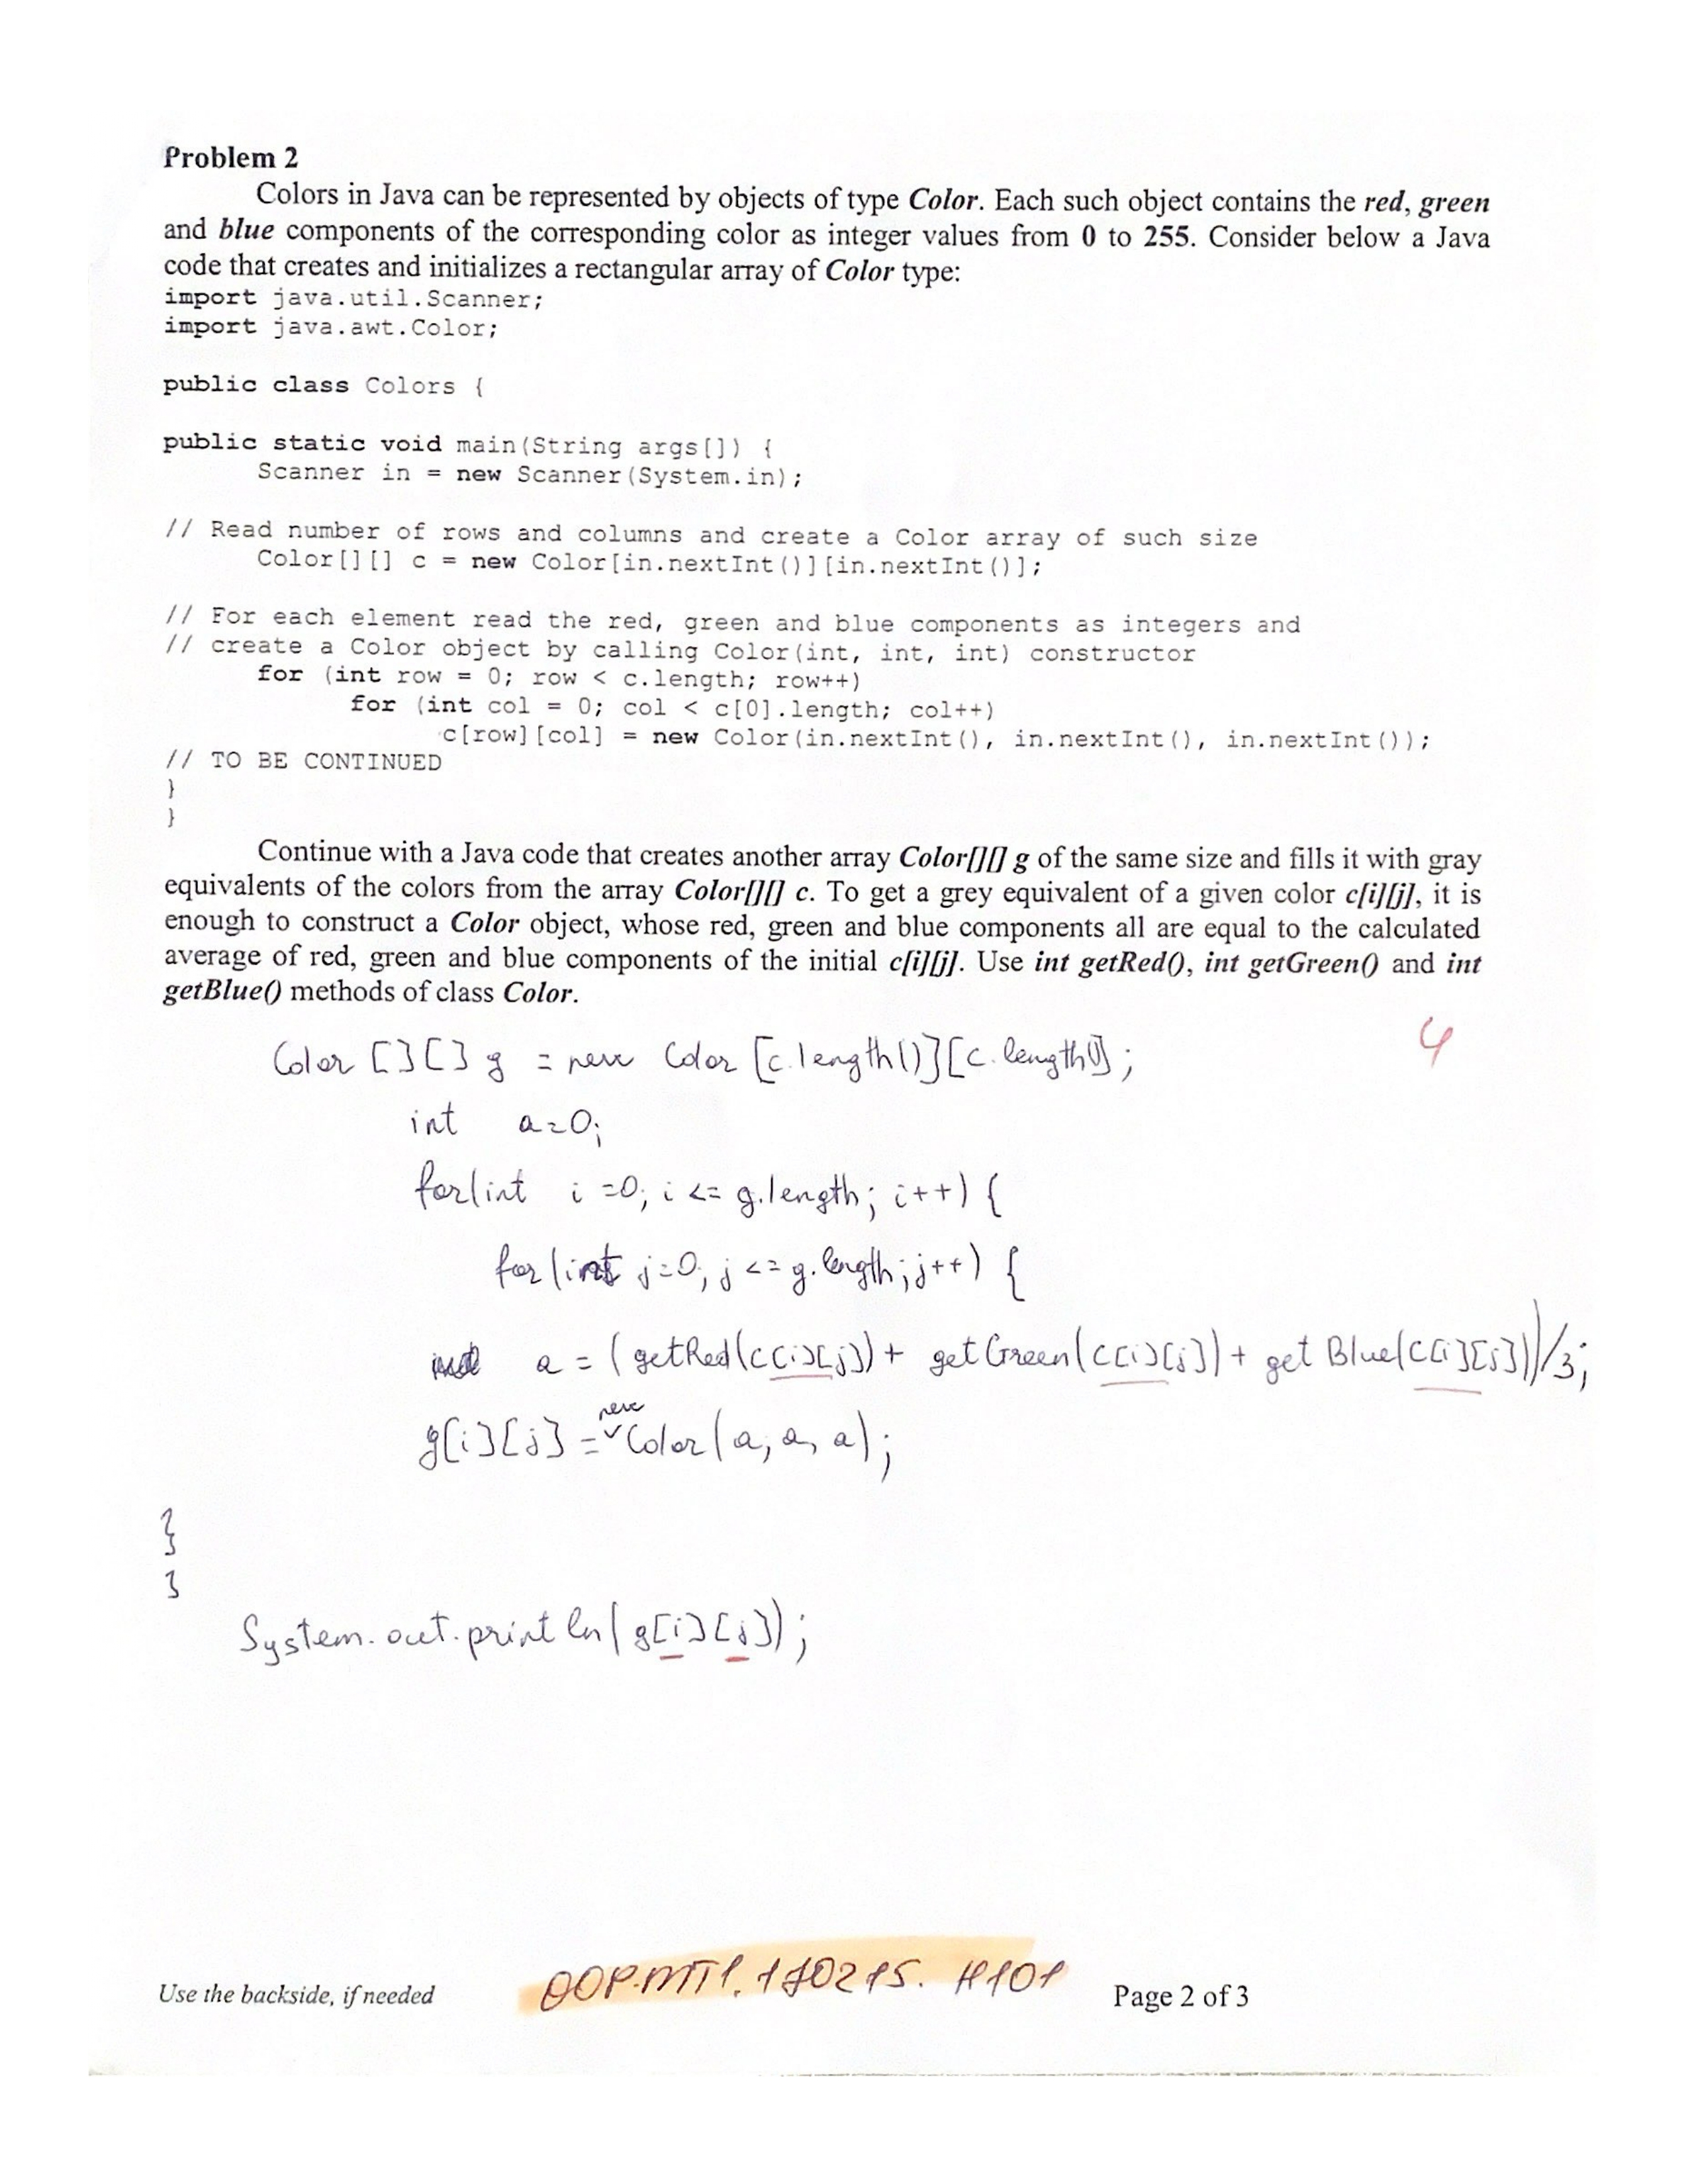 Problem 2
Colors in Java can be represented by objects of type Color. Each such object contains the red, green
and blue components of the corresponding color as integer values from 0 to 255. Consider below a Java
code that creates and initializes a rectangular array of Color type:
import java.util.Scanner;
import java.awt.Color;
public class Colors {
public static void main(String args[]) {
Scanner in = new Scanner(System.in);
// Read number of rows and columns and create a Color array of such size
Color[][] c = new Color[in.nextInt()][in.nextInt()];
// For each element read the red, green and blue components as integers and
// create a Color object by calling Color(int, int, int) constructor
for (int row = 0; row < c.length; row++)
for (int col = 0; col < c[0].length; col++)
c[row][col] = new Color(in.nextInt(), in.nextInt(), in.nextInt());
// TO BE CONTINUED
}
}
Continue with a Java code that creates another array Color[][] g of the same size and fills it with gray
equivalents of the colors from the array Color[][] c. To get a grey equivalent of a given color c[i][j], it is
enough to construct a Color object, whose red, green and blue components all are equal to the calculated
average of red, green and blue components of the initial c[i][j]. Use int getRed(), int getGreen() and int
getBlue() methods of class Color.
4
Color [][] g = new Color [c.length()][c.length()];
int a=0;
for(int i=0; i <= g.length; i++) {
for(int j=0; j <= g.length; j++) {
a = (getRed(c[i][j]) + getGreen(c[i][j]) + getBlue(c[i][j]))/3;
new
g[i][j] = Color(a, a, a);
}
}
System.out.println(g[i][j]);
Use the backside, if needed
OOP.MT1.170215.H101
Page 2 of 3